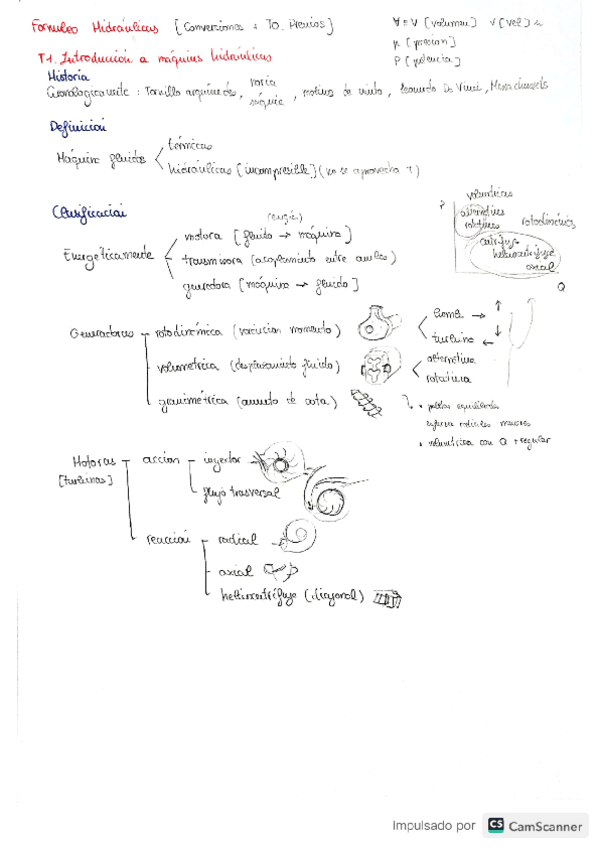 Formuleo Hidráulicas [Conversiones + T0. Previos]
∀ ≡ V [volumen] v [vel]
p [presion]
P [potencia]
T1. Introducción a máquinas hidráulicas
Historia
Cronologicamente: Tornillo arquímedes, noria, molino de viento, Leonardo Da Vinci,
Definición
Máquina fluidos
térmicas
hidráulicas [incompresible] (no se aprovecha T)
Clasificación
Energéticamente
motora [fluido → máquina]
transmisora (acoplamiento entre ambas)
generadora [máquina → fluido]
volumétricas
alternativas
rotativas
rotodinámicas
centrífuga
heliocentrífuga
axial
Q
Generadoras
rotodinámica (variacion momento)
bomba →
turbina ←
volumetrica (desplazamiento fluido)
alternativa
rotativa
gravimétrica (aumento de cota)
• volumétrica con Q + regular
Motoras
[turbinas]
accion
inyector
flujo trasversal
reacción
radial
axial
heliocentrífuga (diagonal)
Impulsado por CS CamScanner